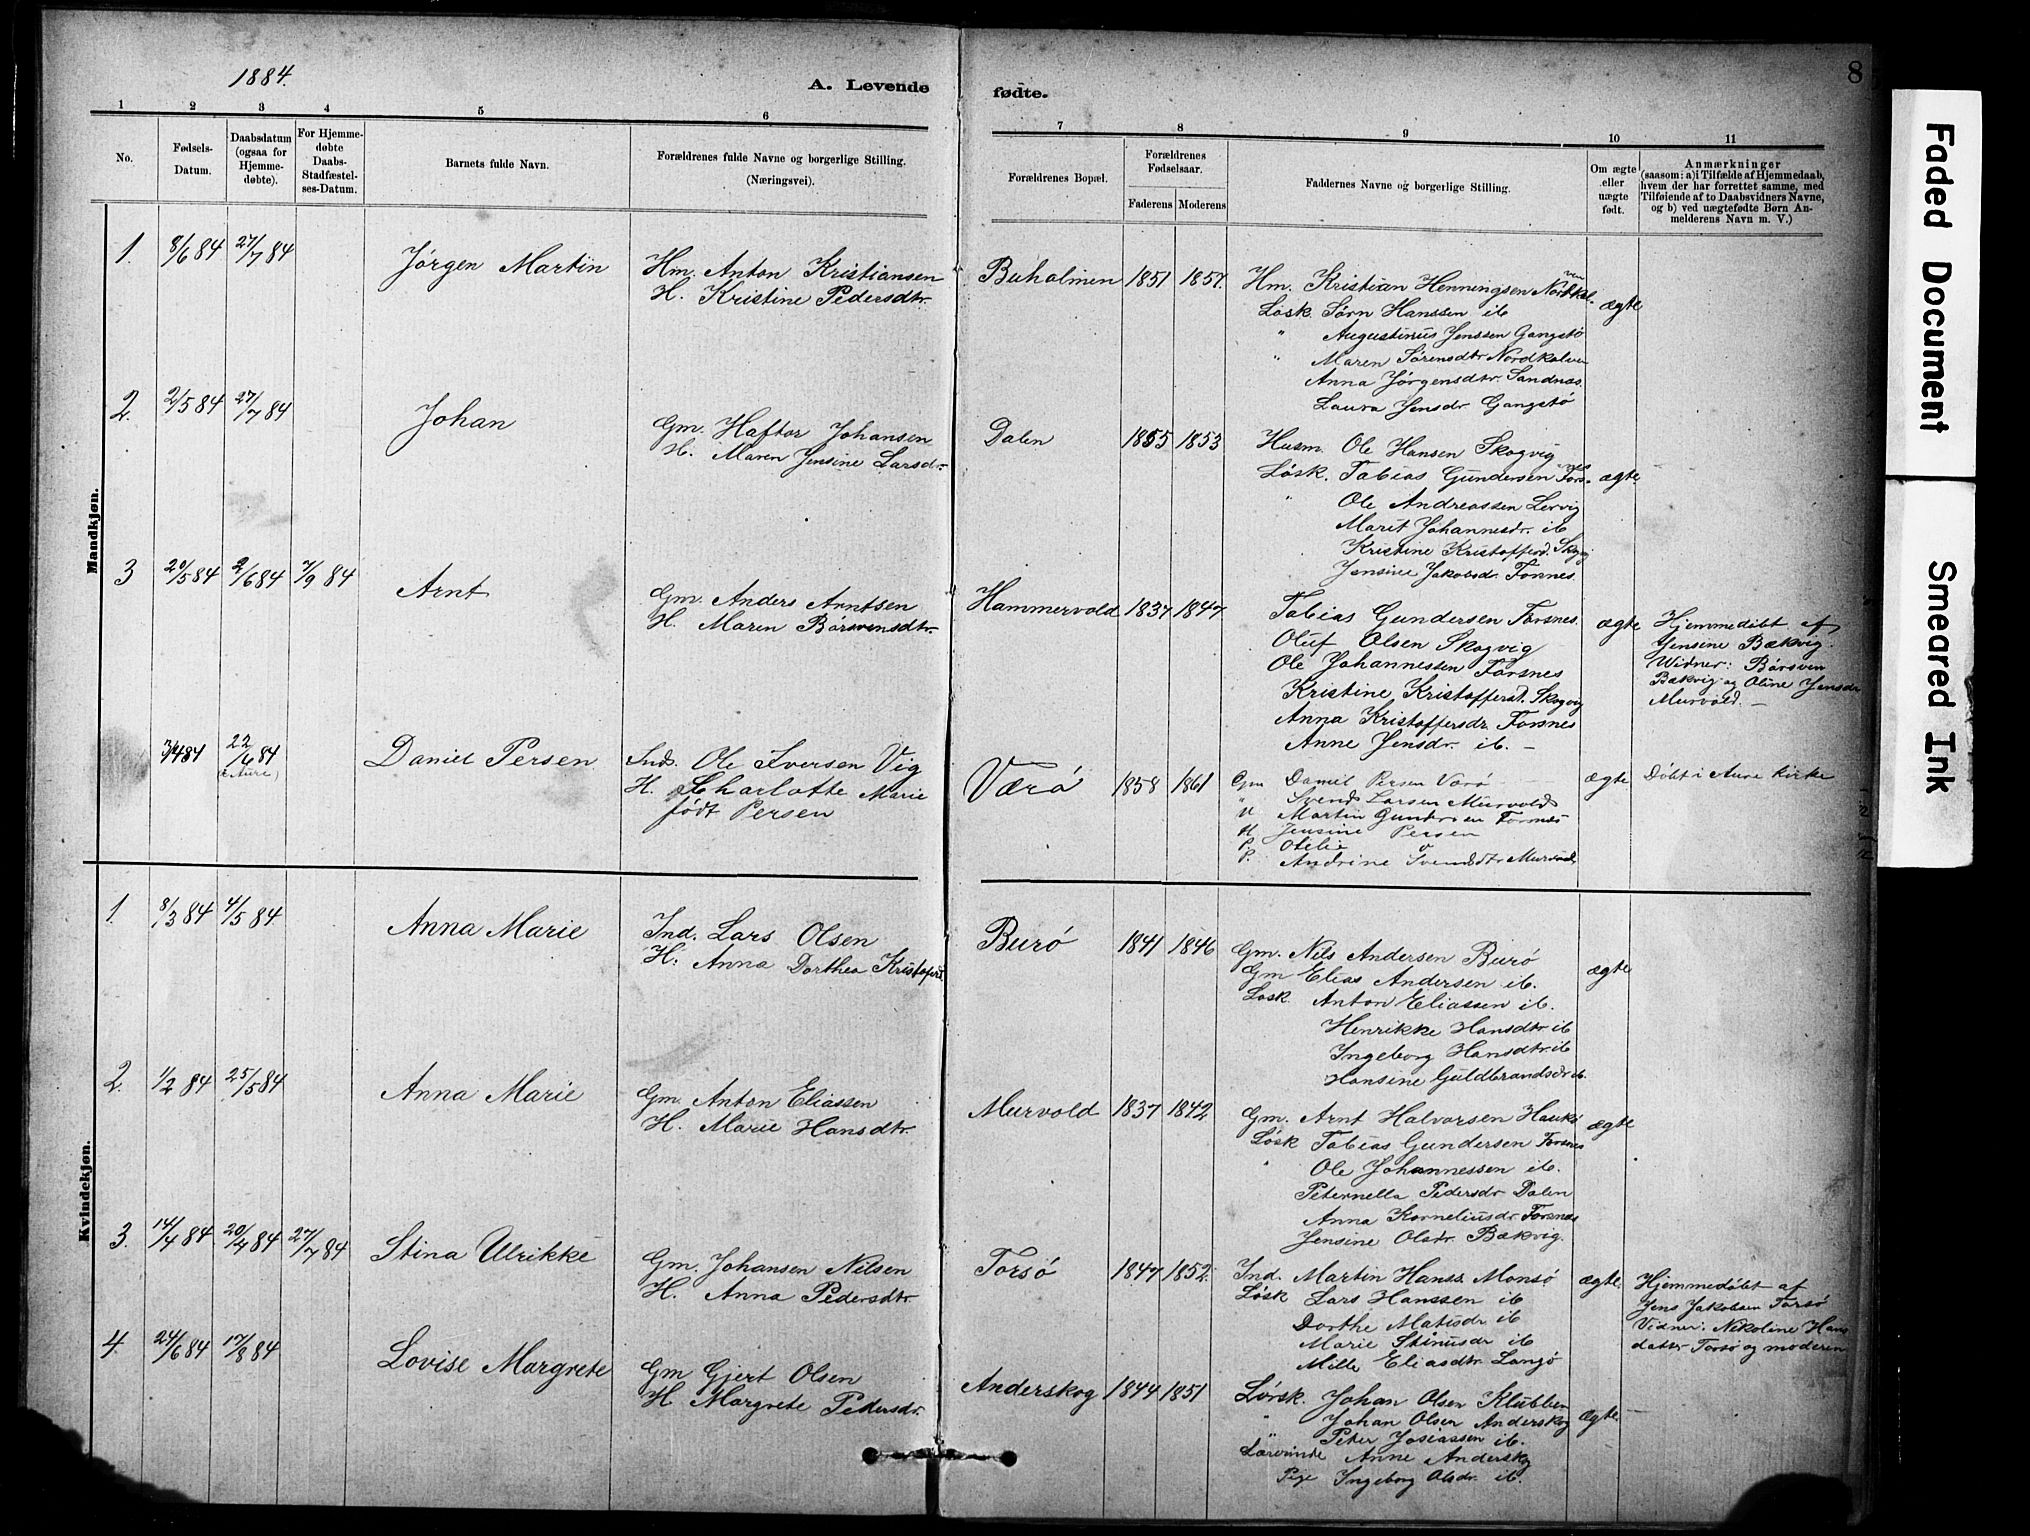 1884.
A. Levende fødte.
8
1 2 3 4 5 6 7 8 9 10 11
No.
Fødsels-Datum.
Daabsdatum (ogsaa for Hjemme-døbte).
For Hjemme-døbte Daabs-Stadfæstel-ses-Datum.
Barnets fulde Navn.
Forældrenes fulde Navne og borgerlige Stilling. (Næringsvei).
Forældrenes Bopæl.
Forældrenes Fødselsaar.
Faderens Moderens
Faddernes Navne og borgerlige Stilling.
Om ægte eller uægte født.
Anmærkninger
(saasom: a) i Tilfælde af Hjemmedaab,
hvem der har forrettet samme, med
Tilføiende af to Daabsvidners Navne,
og b) ved uægtefødte Børn An-
melderens Navn m. V.)
Mandkjøn.
1. 8/6 84 27/7 84 Jørgen Martin
Hm. Anton Kristiansen
H. Kristine Pedersdtr.
Buholmen 1851 1857.
Hm. Kristian Henningsen Nordkal-ven
Løsk. Sørn Hanssen ib
" Augustinus Jenssen Gangstø
" Maren Sørensdtr Nordkalven
Anna Jørgensdtr. Sandnes.
Laura Jensdr. Gangstø
ægte
2. 2/5 84 27/7 84 Johan
Gm. Haftor Johansen
H. Maren Jensine Larsdr.
Dalen 1855 1853
Husm. Ole Hansen Skogvig
Løsk. Tobias Gundersen Fors-nes
" Ole Andreassen Lervig
Marit Johannesdr. ib
Kristine Kristofferd. Skogvig
Jensine Jakobsdr. Forsnes.
ægte
3 20/5 84 2/6 84 7/9 84 Arnt
Gm. Anders Arntsen
H. Maren Børsvensdtr.
Hammervold 1837 1847
Tobias Gundersen Forsnes.
Oluf Olsen Skogvig
Ole Johannessen Forsnes
Kristine Kristofferdt. Skogvig
Anna Kristoffersdr. Forsnes
Anne Jensdr. ib. -
ægte
Hjemmedøbt af
Jensine Bækvig.
Widner: Børsven
Bækvig og Oline Jensdr
Murvold. -
3/4 84 22/6 84 (i Aure) Daniel Persen
Ind. Ole Iversen Vig
H. Charlotte Marie
født Persen
Værø 1858 1861
Gm Daniel Persen Værø
" Svend Larsen Murvold
U Martin Gundersen Forsnes
H Jensine Persen
P. Otelie "
P. Andrine Svendsdtr Murvold
ægte
Døbt i Aure kirke
Kvindekjøn.
1. 8/3 84 4/5 84 Anna Marie
Ind. Lars Olsen
H. Anna Dorthea Kristofersd
Burø 1841 1846
Gm. Nils Andersen Burø
Gm Elias Andersen ib.
Løsk. Anton Eliassen ib.
Henrikke Hansdtr ib
Ingeborg Hansdtr. ib
Hansine Guldbrandsdr ib.
ægte
2. 1/2 84 25/5 84 Anna Marie
Gm. Anton Eliassen
H. Marie Hansdtr.
Murvold 1837 1842
Gm. Arnt Halvorsen Haukø
Løsk Tobias Gundersen Forsnes
" Ole Johannessen ib.
Peternella Pedersdr Dalen
Anna Korneliusdr Forsnes
Jensine Olsdr. Bækvig.
ægte
3. 14/4 84 20/4 84 27/7 84 Stina Ulrikke
Gm. Johansen Nilsen
H. Anna Pedersdtr.
Torsø 1847 1852.
Ind. Martin Hanss. Monsø
Løsk Lars Hanssen ib
Dorthe Matisdr ib
Marie Stinusdr ib
Mille Eliasdtr Langø
ægte
Hjemmedøbt af
Jens Jakobsen Torsø
Vidner: Nikoline Hans
datter Torsø og moderen
4. 24/6 84 17/8 84 Lovise Margrete
Gm Gjert Olsen
H Margrete Pedersdr.
Anderskog 1844 1851
Løsk. Johan Olsen Klubben
" Johan Olsen Anderskog
" Peter Josiassen ib.
Anne Anderskg
Pige Ingeborg Olsdr. ib.
ægte
Faded Document
Smeared Ink